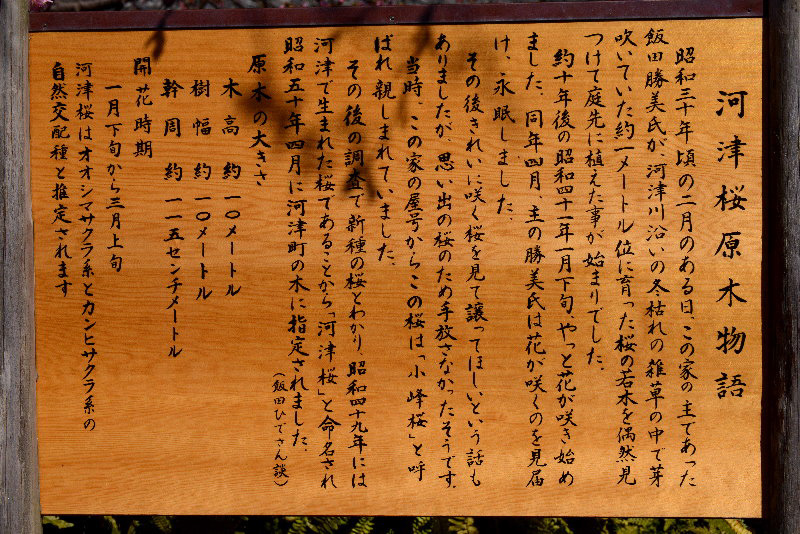 河津桜原木物語
昭和三十年頃の二月のある日、この家の主であった
飯田勝美氏が、河津川沿いの冬枯れの雑草の中で芽
吹いていた約一メートル位に育った桜の若木を偶然見
つけて庭先に植えた事が始まりでした。
約十年後の昭和四十一年一月下旬、やっと花が咲き始め
ました。同年四月、主の勝美氏は花が咲くのを見届
け、永眠しました。
その後きれいに咲く桜を見て譲ってほしいという話も
ありましたが、思い出の桜のため手放さなかったそうです。
当時、この家の屋号からこの桜は「小峰桜」と呼
ばれ親しまれていました。
その後の調査で新種の桜とわかり、昭和四十九年には
河津で生まれた桜であることから「河津桜」と命名され
昭和五十年四月に河津町の木に指定されました。
（飯田ひでさん談）
原木の大きさ
木高 約一〇メートル
樹幅 約一〇メートル
幹周 約一一五センチメートル
開花時期
一月下旬から三月上旬
河津桜はオオシマザクラ系とカンヒザクラ系の
自然交配種と推定されます